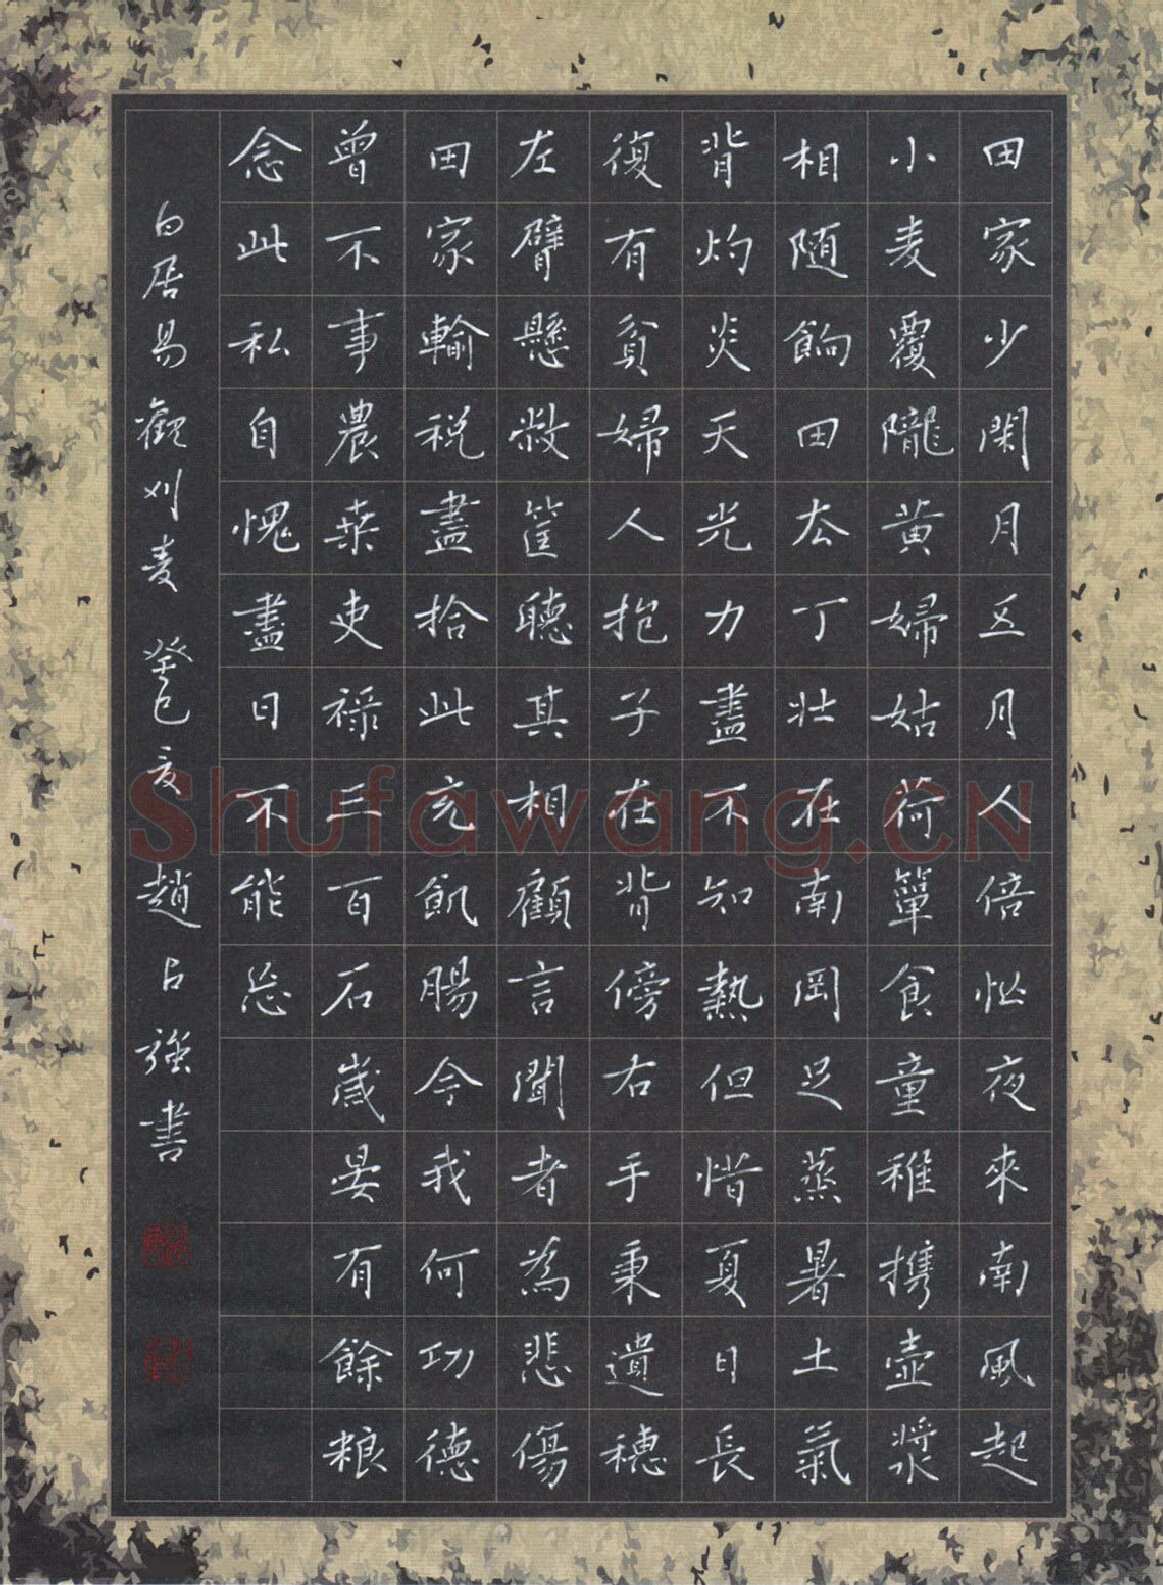 田家少閑月五月人倍忙夜來南風起
小麦覆隴黄婦姑荷簞食童稚携壺漿
相随餉田去丁壮在南岡足蒸暑土氣
背灼炎天光力盡不知熱但惜夏日長
復有貧婦人抱子在背傍右手秉遺穗
左臂懸敝筐聽其相顧言聞者為悲傷
田家輸税盡拾此充飢腸今我何功德
曾不事農桒吏禄三百石歲晏有餘粮
念此私自愧盡日不能忘
白居易觀刈麦 癸巳亥 趙占強書
Shufawang.CN